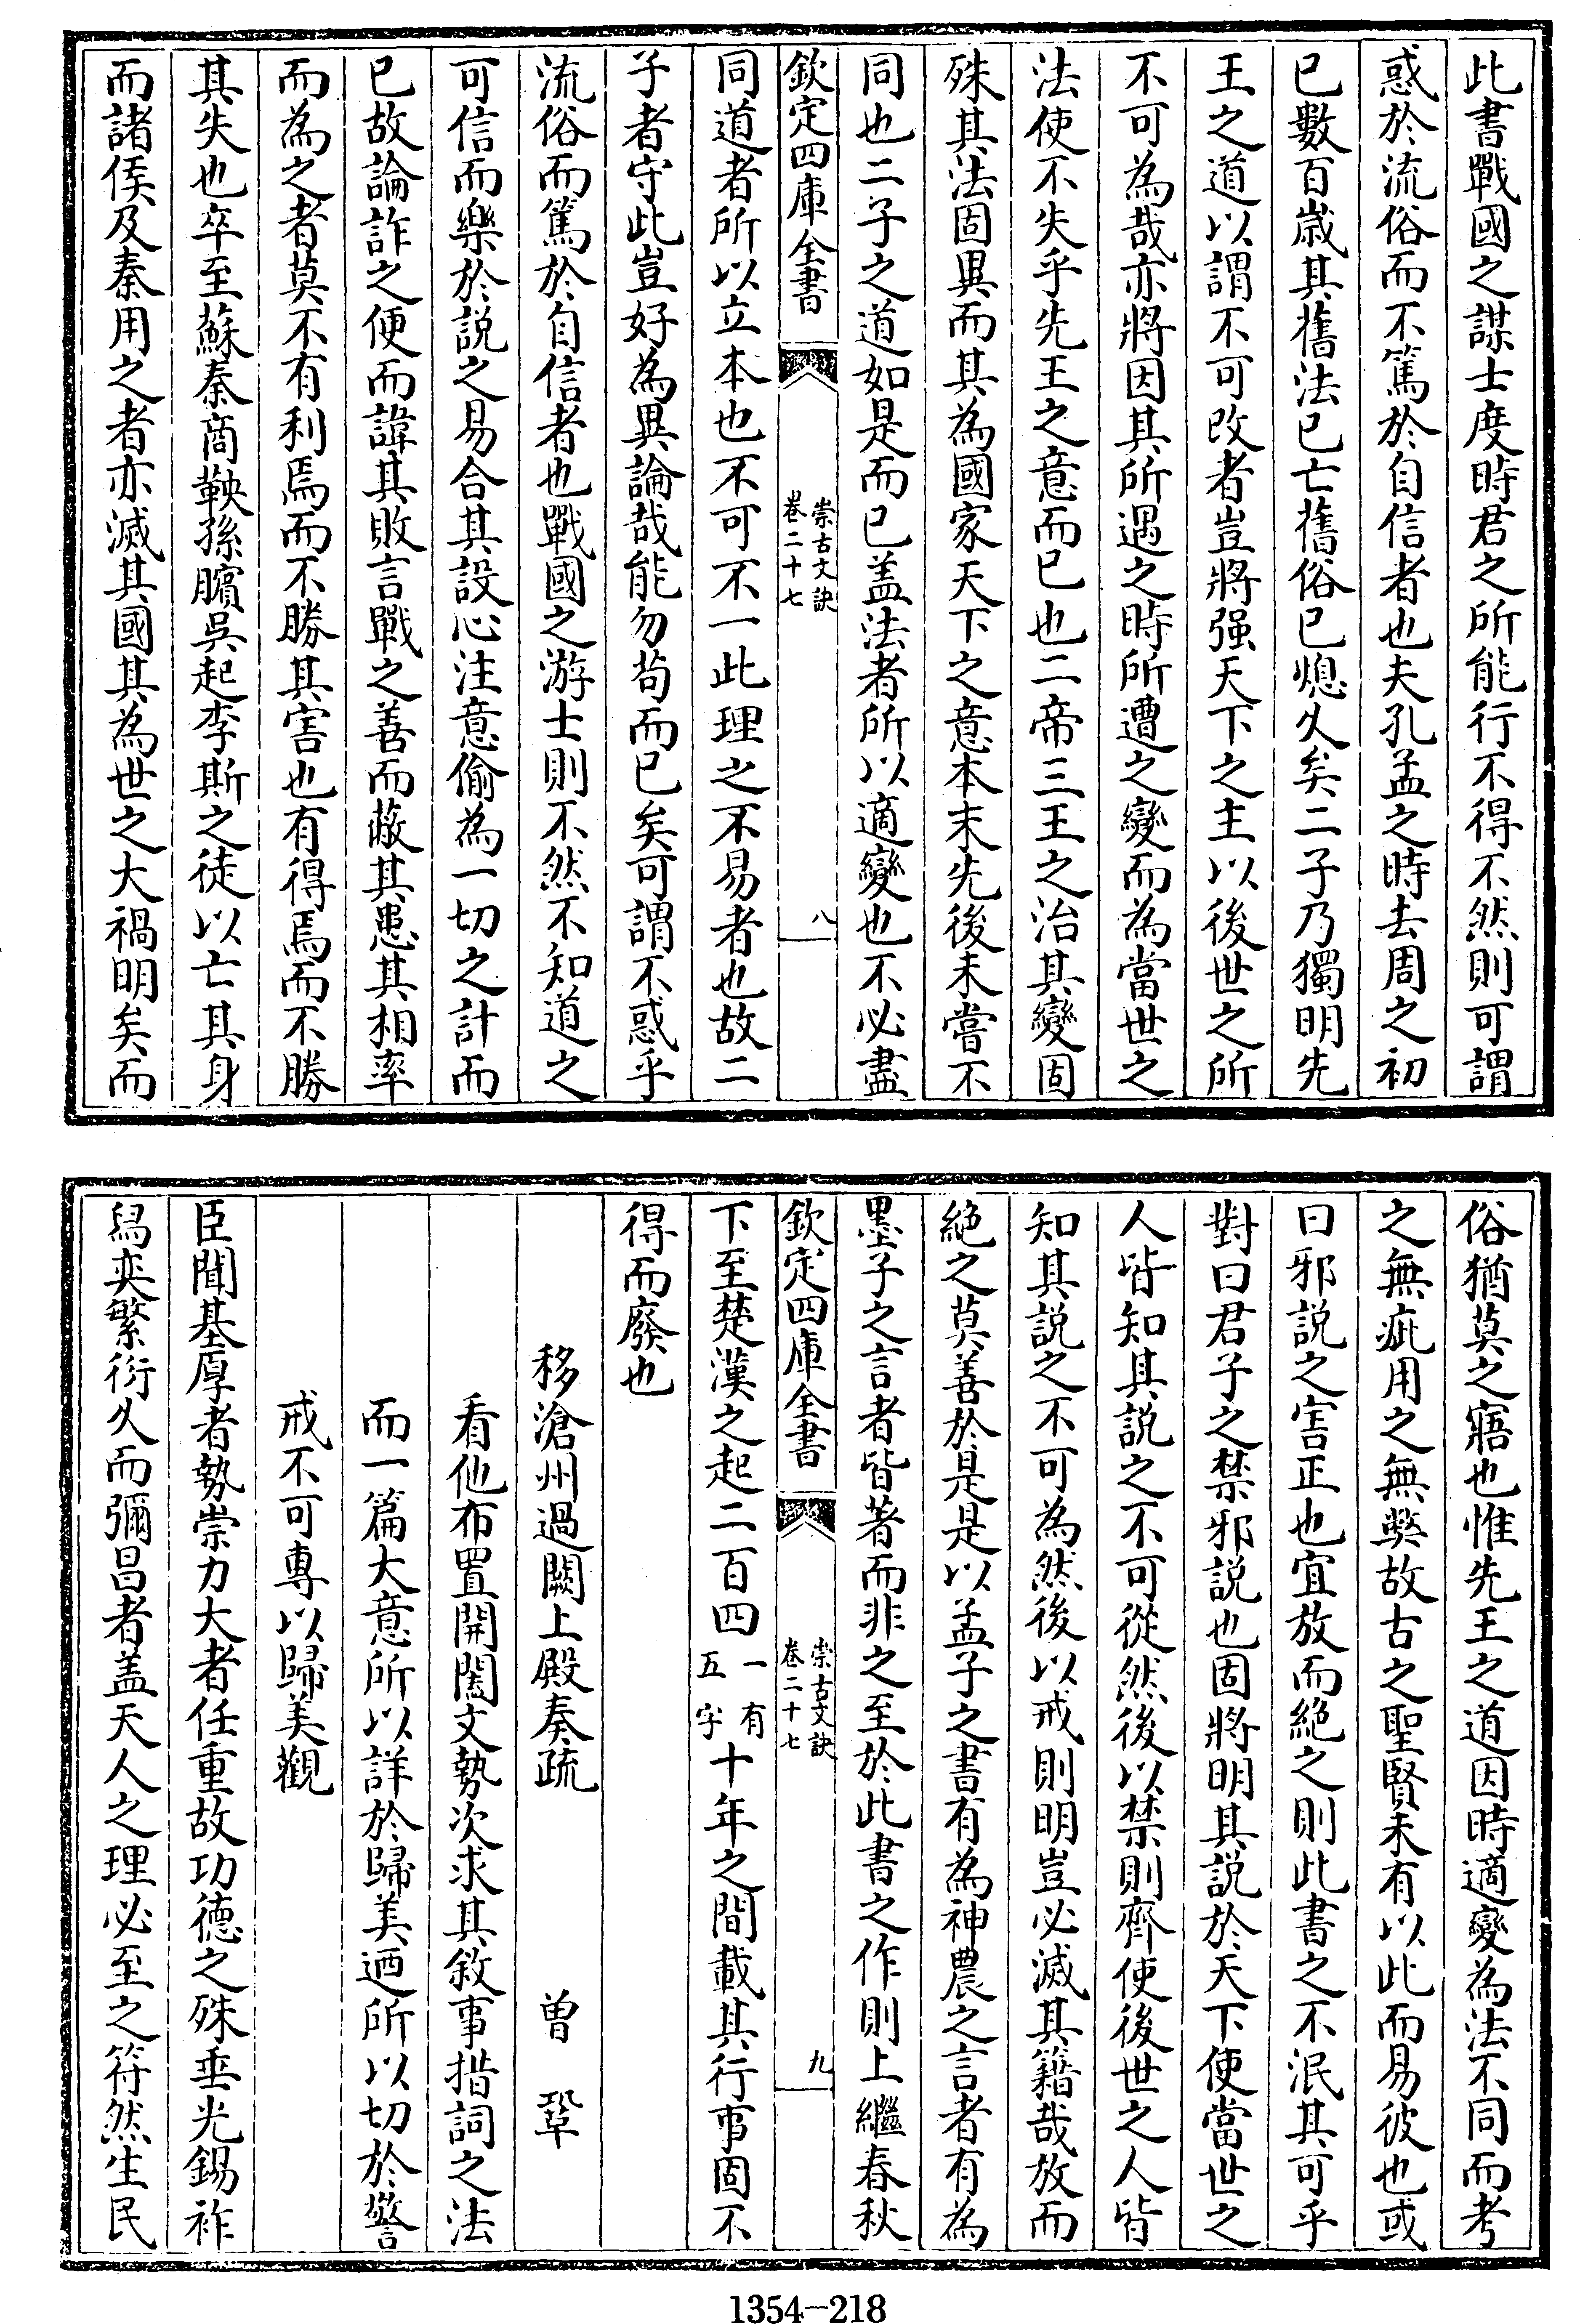 此書戰國之謀士度時君之所能行不得不然則可謂
惑於流俗而不篤於自信者也夫孔孟之時去周之初
已數百歲其舊法已亡舊俗已熄久矣二子乃獨明先
王之道以謂不可改者豈將强天下之主以後世之所
不可為哉亦將因其所遇之時所遭之變而為當世之
法使不失乎先王之意而已也二帝三王之治其變固
殊其法固異而其為國家天下之意本末先後未嘗不
同也二子之道如是而已盖法者所以適變也不必盡
欽定四庫全書
崇古文訣
卷二十七
八
同道者所以立本也不可不一此理之不易者也故二
子者守此豈好為異論哉能勿茍而已矣可謂不惑乎
流俗而篤於自信者也戰國之游士則不然不知道之
可信而樂於說之易合其設心注意偷為一切之計而
已故論詐之便而諱其敗言戰之善而蔽其患其相率
而為之者莫不有利焉而不勝其害也有得焉而不勝
其失也卒至蘇秦商鞅孫臏吳起李斯之徒以亡其身
而諸侯及秦用之者亦滅其國其為世之大禍明矣而
俗猶莫之寤也惟先王之道因時適變為法不同而考
之無疵用之無弊故古之聖賢未有以此而易彼也或
曰邪說之害正也宜放而絶之則此書之不泯其可乎
對曰君子之禁邪說也固將明其說於天下使當世之
人皆知其說之不可從然後以禁則齊使後世之人皆
知其說之不可為然後以戒則明豈必滅其籍哉放而
絶之莫善於是是以孟子之書有為神農之言者有為
墨子之言者皆著而非之至於此書之作則上繼春秋
欽定四庫全書
崇古文訣
卷二十七
九
下至楚漢之起二百四一有五字十年之間載其行事固不
得而廢也
移滄州過闕上殿奏疏 曾鞏
看他布置開闔文勢次求其敘事措詞之法
而一篇大意所以詳於歸美廼所以切於警
戒不可專以歸美觀
臣聞基厚者勢崇力大者任重故功德之殊垂光錫祚
舄奕繁衍久而彌昌者盖天人之理必至之符然生民
1354-218